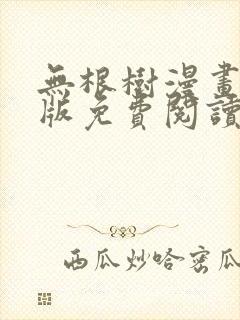 無根樹漫畫
版免費閱讀
西瓜炒哈密瓜